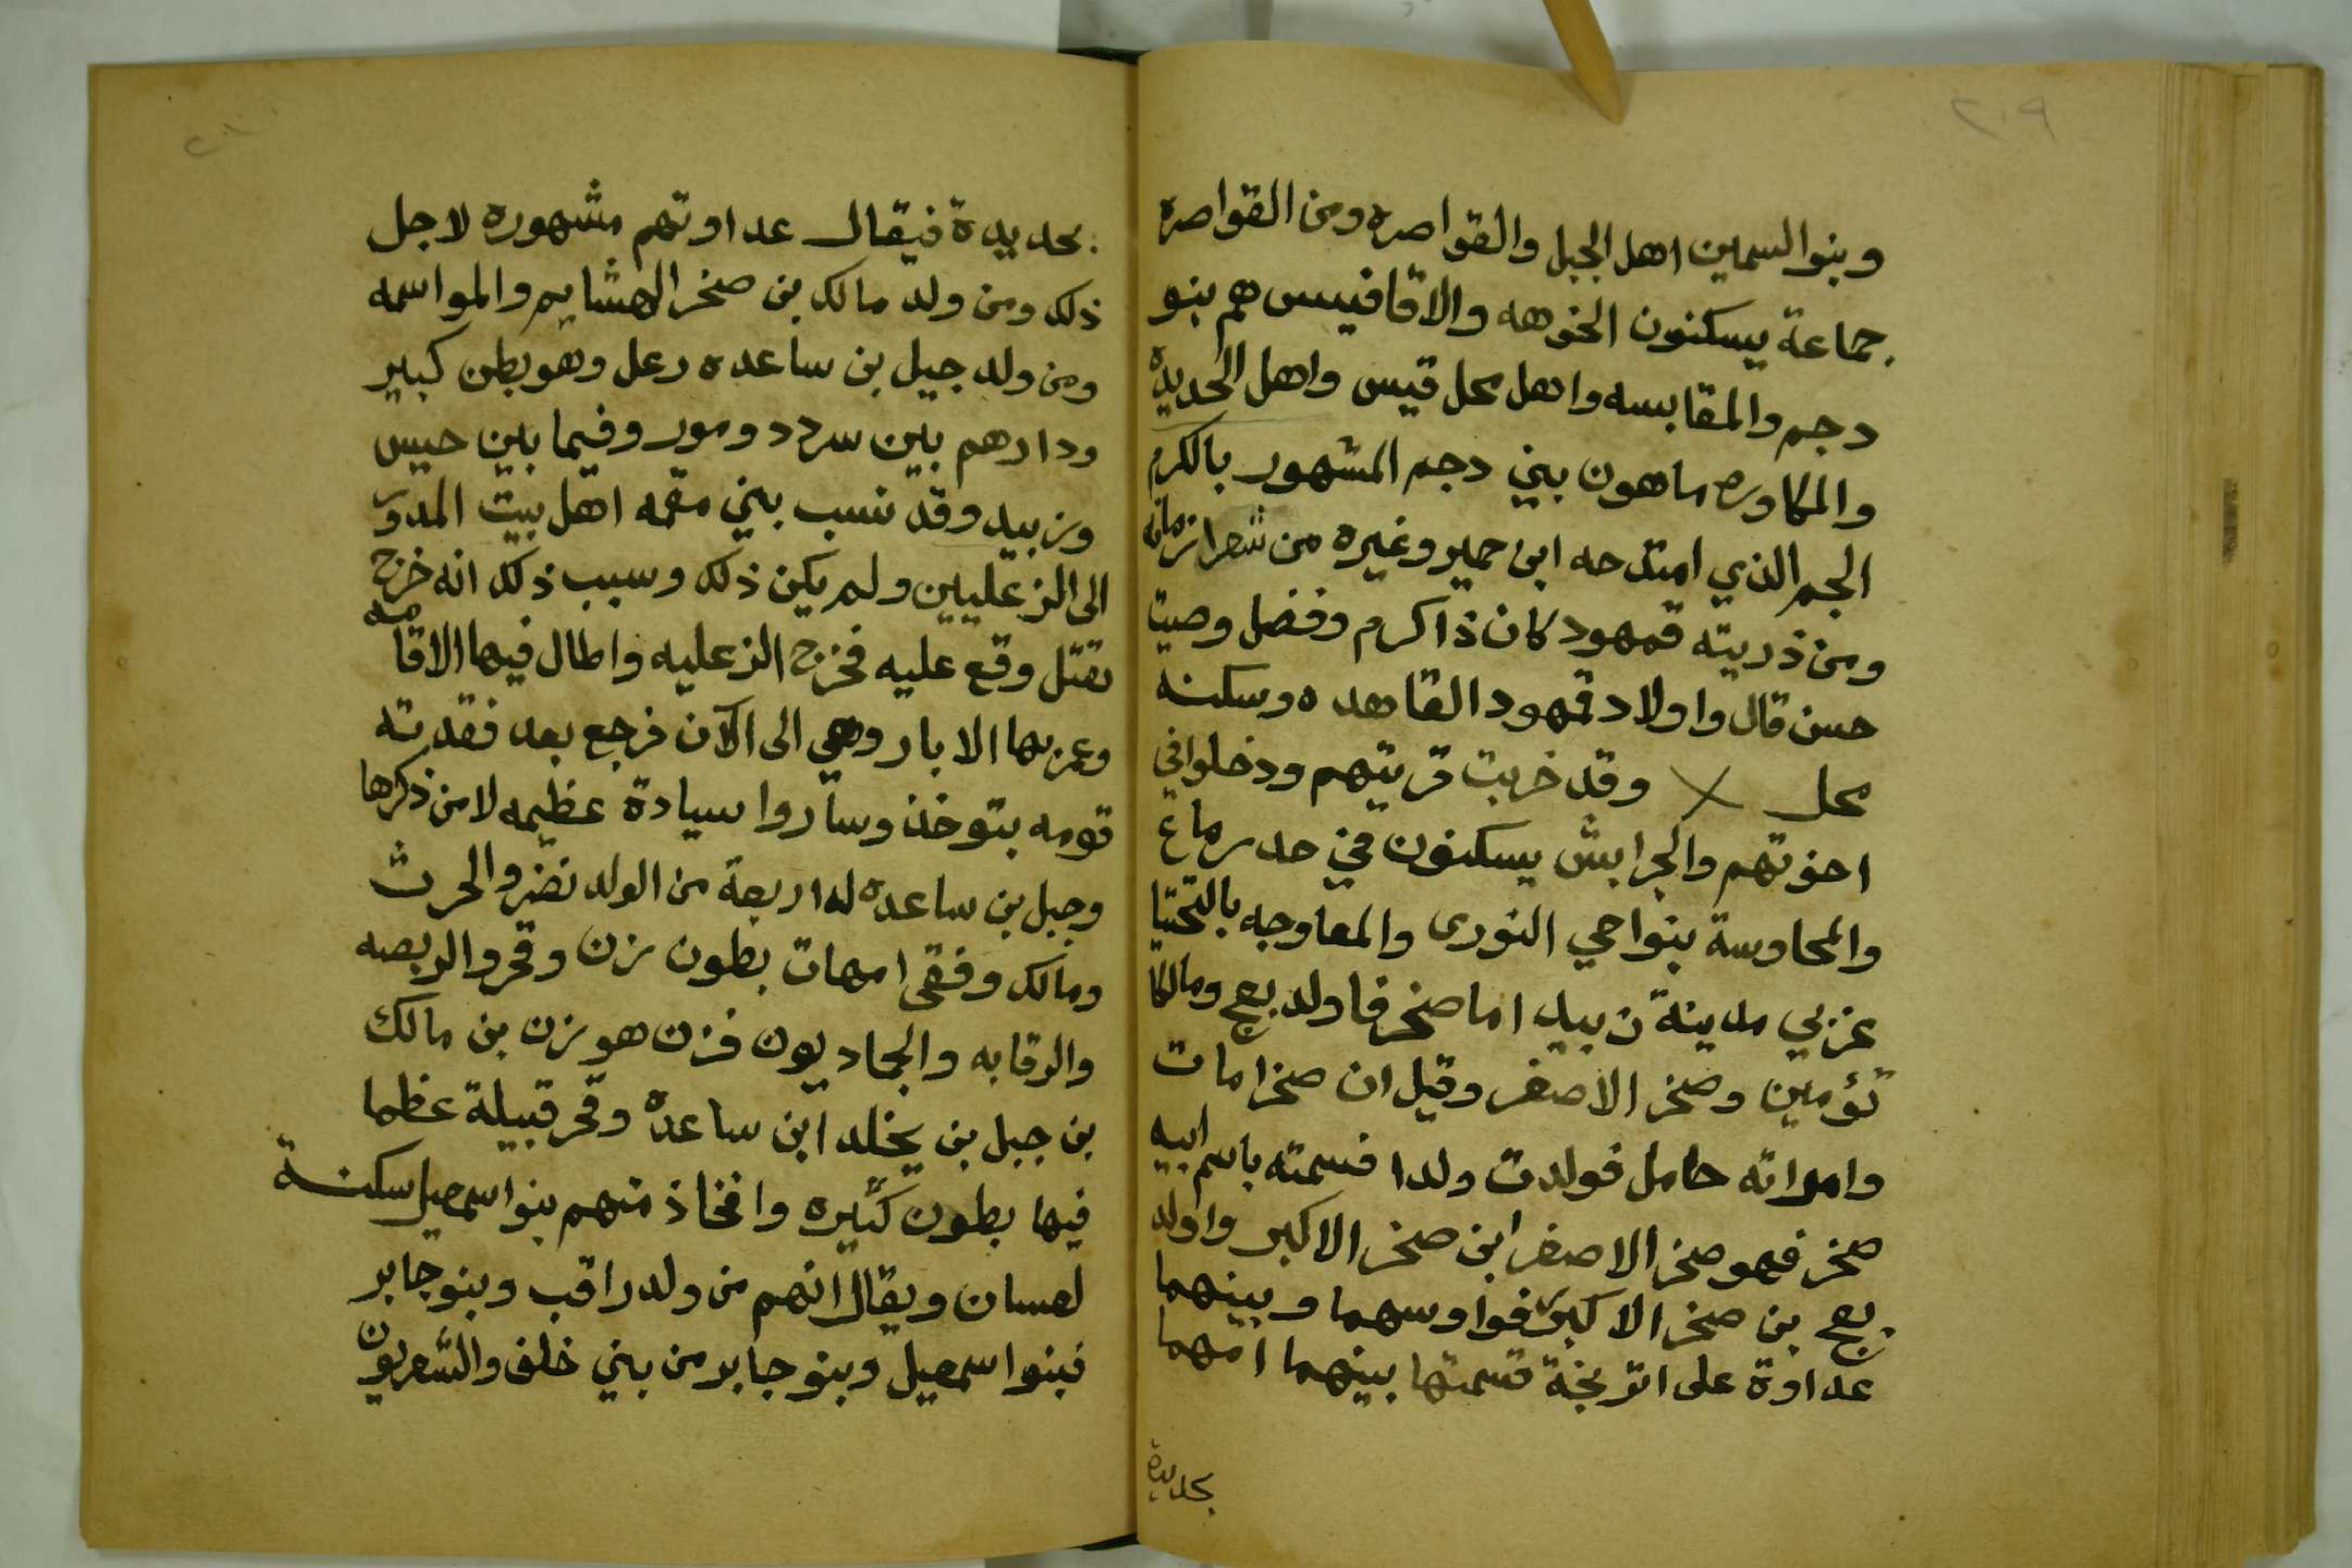 ٢٠٩
وبنوا السمين اهل الجبل والقواصره ومن القواصره
جماعة يسكنون الخوهه والاقافيس هم بنو
دجم والمقابسه واهل محل قيس واهل الحديدة
والمكاوره ماهون بيني دجم المشهور بالكرم
الجم الذي امتدحه ابن حمير وغيره من شعرا زمانه
ومن ذريته قمهود كان ذا كرم وفضل وصيت
حسن قال واولاد قمهود القاهده وسكنه
محل وقد خربت قريتهم ودخلوا في
اخوتهم والجرابش يسكنون في حد رماع
والمحاوسة بنواحي النورى والمعاوجه بالتحيتا
غزبي مدينة زبيد اما صخر فاولد بعج ومالكا
تؤمين وصخر الاصغر وقيل ان صخرا مات
وامراته حامل فولدت ولدا فسمته باسم ابيه
صخر فهو صخر الاصغر ابن صخر الاكبر واولد
بعج بن صخر الاكبر فواوسهما وبينهما
عداوة على اترنجة قسمتها بينهما امهما
بحديدة
٢١٠
بحديدة فيقال عداوتهم مشهوره لاجل
ذلك ومن ولد مالك بن صخر الهشايم والمواسمه
ومن ولد جيل بن ساعده رعل وهو بطن كبير
ودارهم بين سردد ومور وفيما بين حيس
وزبيد وقد نسب بيني مقمه اهل بيت المدور
الى الزعليين ولم يكن ذلك وسبب ذلك انه خرج
بقتل وقع عليه فخرج الزعليه واطال فيها الاقامه
وعمر بها الابار وهي الى الآن فرجع بعد فقدته
قومه بتوخذ وساروا سيادة عظيمه لا من ذكرها
وجبل بن ساعده له اربعة من الولد نضر والحرث
ومالك وفقى امهات بطون نزن وقحر والربصه
والرقابه والجاديون فزن هو نزن بن مالك
بن جبل بن يخلد ابن ساعده وقحر قبيلة عظما
فيها بطون كثيره وافخاذ منهم بنوا اسمعيل سكنة
لعسان ويقال انهم من ولد راقب وبنو جابر
فبنوا اسمعيل وبنو جابر من بني خلف والشعريون